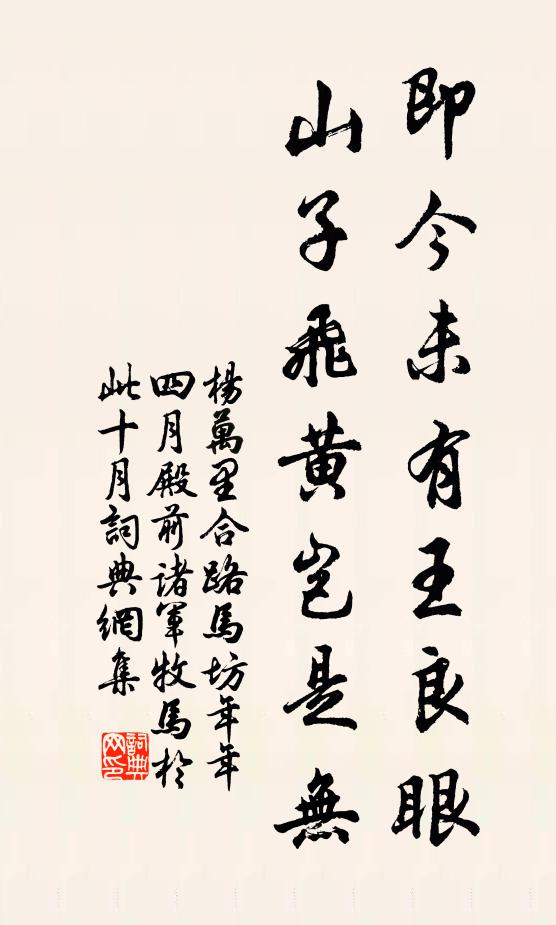 即今未有王良眼
山子飛黄豈是無
楊萬里合路馬坊年年
四月殿前諸軍牧馬於
此十月詞典網集
詞典
网印